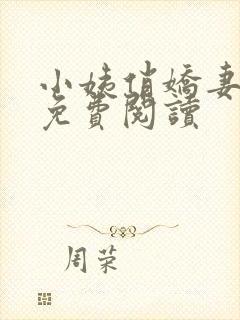 小姨俏嬌妻
免費閱讀
周荣